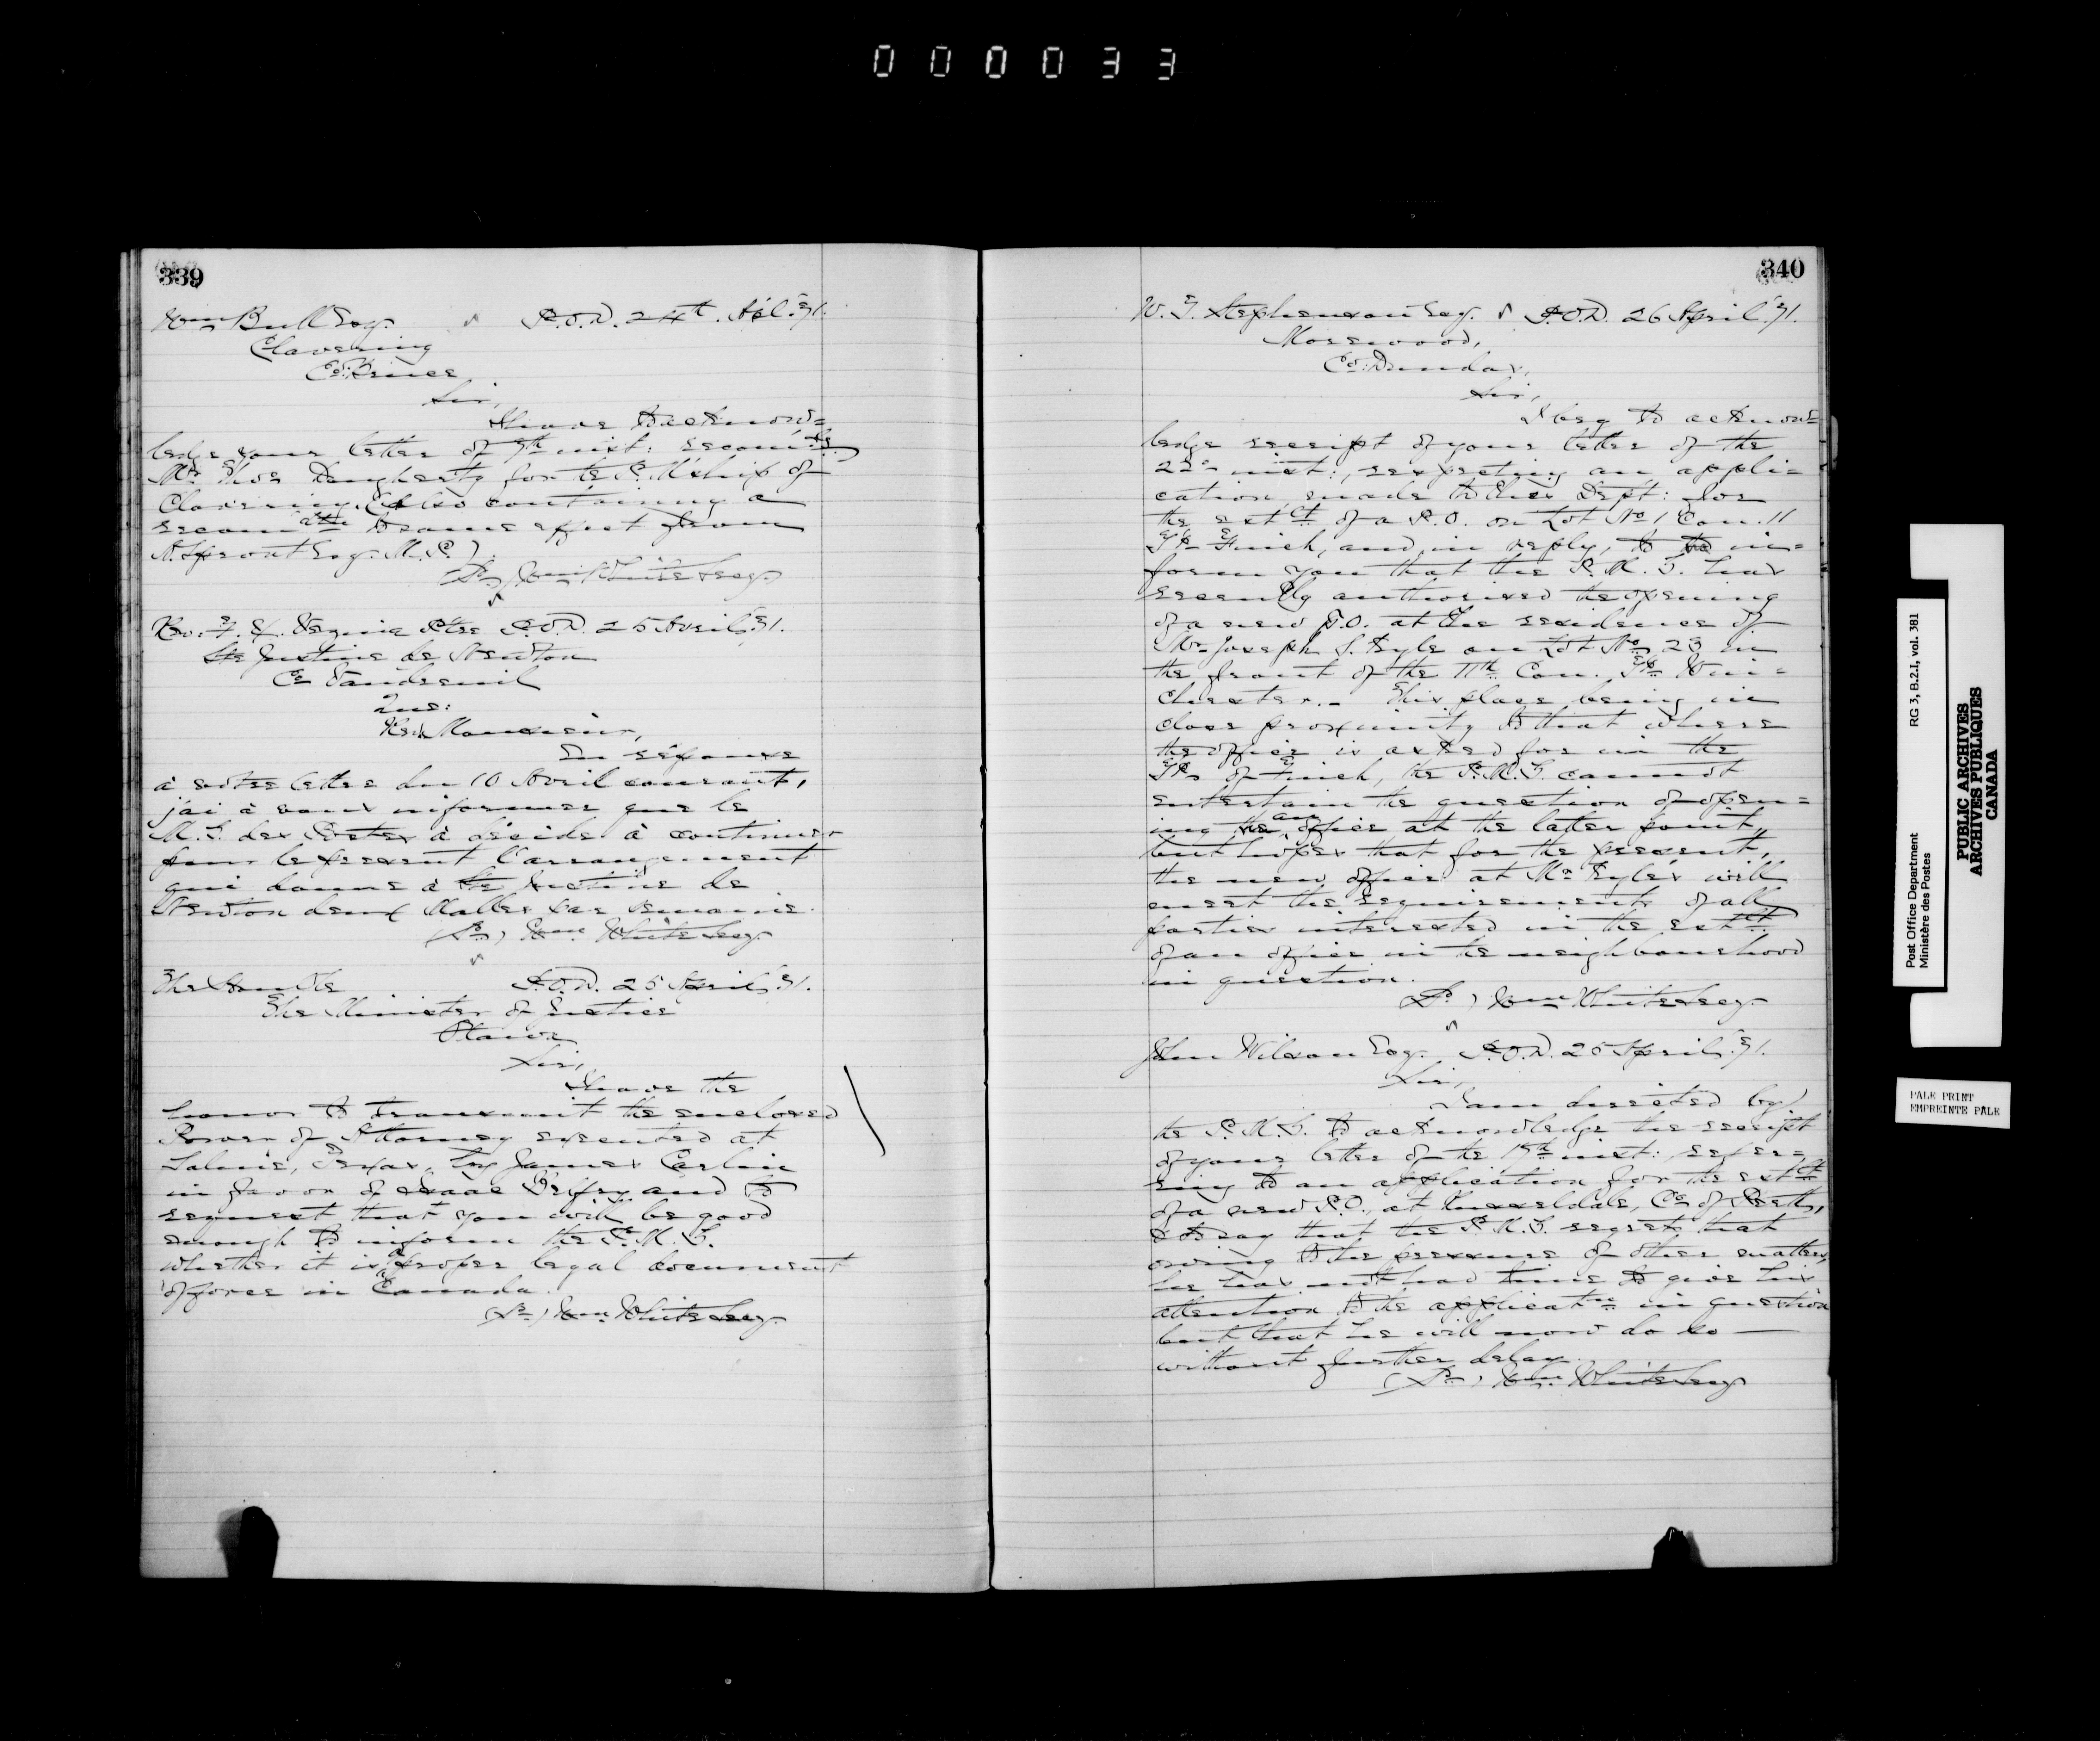 000033
339
Wm Bull Esq. P.O.D. 24th. Apl. '91.
Clavering
Co: Bruce
Sir,
I have to acknow=
ledge your letter of 9th inst: recom'dg
Mr. Thos Daugherty for the P. M'ship of
Clavering, (Also containing a
recom'atn to same effect from
A. Sproat Esq. M.P.)
(Sd) Wm White Secy.
Rev: F. X. Ptre P.O.D. 25 Avril '91.
Ste Justine de Newton
Co Vaudreuil
Que:
Rev. Monsieur,
En réponse
à votre lettre du 10 Avril courant,
j'ai à vous informer que le
M. G. des Postes à décidé à continuer
pour le present l'arrangement
qui donne à Ste Justine de
Newton deux Malles par semaine.
(Sd) Wm White Secy.
The Honble P.O.D. 25 April '91.
The Minister of Justice
Ottawa
Sir,
I have the
honor to transmit the enclosed
Power of Attorney executed at
Texas, by James Carlin
in favor of Isaac and to
request that you will be good
enough to inform the P. M. G.
whether it is a proper legal document
of force in Canada.
(Sd) Wm White Secy.
340
W. G. Stephenson Esq. P.O.D. 26 April '91.
Morewood,
Co: Dundas,
Sir,
I beg to acknow=
ledge receipt of your letter of the
22d inst:, respecting an appli=
cation made to this Dept: for
the est'ct of a P.O. on Lot No 1 Con. 11
Tp Finch, and, in reply, to in=
form you that the P. M. G. has
recently authorised the opening
of a new P.O. at the residence of
Mr. Joseph S. Kyle on Lot No 23 in
the front of the 11th Con. Tp Win=
chester. - This place being in
close proximity to that where
the office is asked for in the
Tp of Finch, the P. M. G. cannot
entertain the question of open=
ing an office at the latter point,
but hopes that for the present,
the new office at Mr Kyle's will
meet the requirements of all
parties interested in the est'ct
of an office in the neighbourhood
in question.
(Sd) Wm White Secy.
John Wilson Esq. P.O.D. 25 April '91.
Sir,
I am directed by
the P. M. G. to acknowledge the receipt
of your letter of the 15th inst:, refer=
ring to an application for the est'ct
of a new P.O., at Co of Perth,
& to say that the P. M. G. regrets that
owing to the pressure of other matters,
he has not had time to give his
attention to the applicatn in question
but that he will now do so
without further delay.
(Sd) Wm White Secy.
Post Office Department RG 3, B.2.I, vol. 381
Ministère des Postes
PUBLIC ARCHIVES
ARCHIVES PUBLIQUES
CANADA
PALE PRINT
EMPREINTE PALE